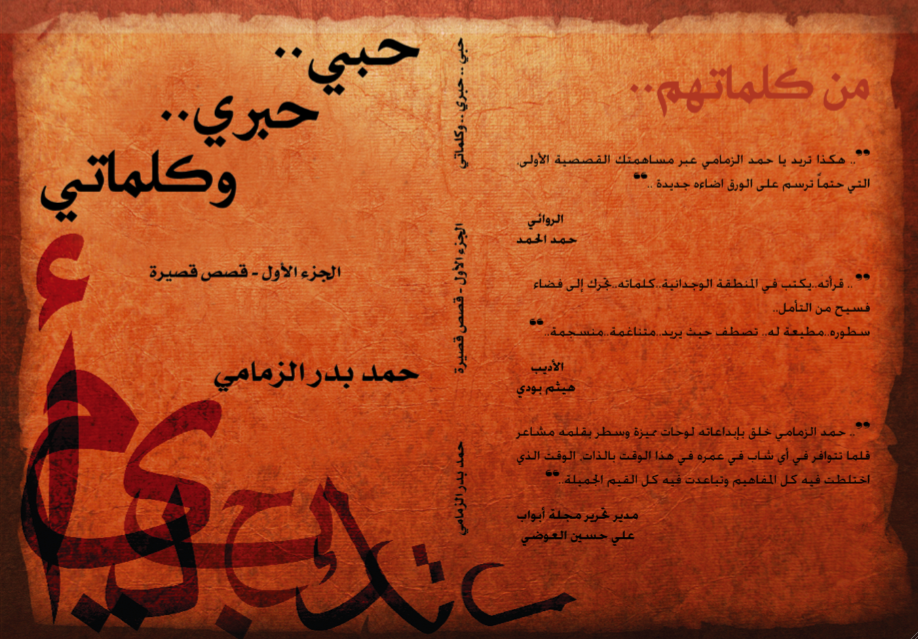 حبي..
حبري..
وكلماتي
الجزء الأول - قصص قصيرة
حمد بدر الزمامي
حبي .. حبري .. وكلماتي
الجزء الأول - قصص قصيرة
حمد بدر الزمامي
من كلماتهم..
❞.. هكذا تريد يا حمد الزمامي عبر مساهمتك القصصية الأولى,
التي حتماً ترسم على الورق اضاءه جديدة ..❝
الروائي
حمد الحمد
❞.. قرأته..يكتب في المنطقة الوجدانية..كلماته..تجرك إلى فضاء
فسيح من التأمل..
سطوره..مطيعة له.. تصطف حيث يريد..متناغمة..منسجمة..❝
الأديب
هيثم بودي
❞.. حمد الزمامي خلق بإبداعاته لوحات مميزة وسطر بقلمه مشاعر
قلما تتوافر في أي شاب في عمره في هذا الوقت بالذات, الوقت الذي
اختلطت فيه كل المفاهيم وتباعدت فيه كل القيم الجميلة..❝
مدير تحرير مجلة أبواب
علي حسين العوضي